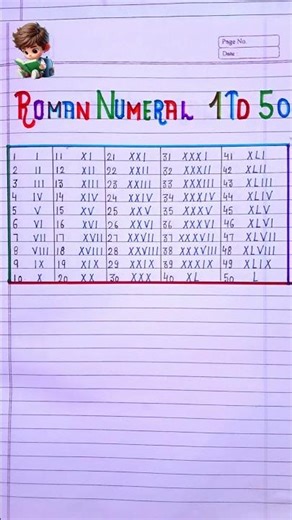 Page No.
Date
ROMAN NUMERAL 1 TO 50
1 I 11 XI 21 XXI 31 XXXI 41 XLI
2 II 12 XII 22 XXII 32 XXXII 42 XLII
3 III 13 XIII 23 XXIII 33 XXXIII 43 XLIII
4 IV 14 XIV 24 XXIV 34 XXXIV 44 XLIV
5 V 15 XV 25 XXV 35 XXXV 45 XLV
6 VI 16 XVI 26 XXVI 36 XXXVI 46 XLVI
7 VII 17 XVII 27 XXVII 37 XXXVII 47 XLVII
8 VIII 18 XVIII 28 XXVIII 38 XXXVIII 48 XLVIII
9 IX 19 XIX 29 XXIX 39 XXXIX 49 XLIX
10 X 20 XX 30 XXX 40 XL 50 L